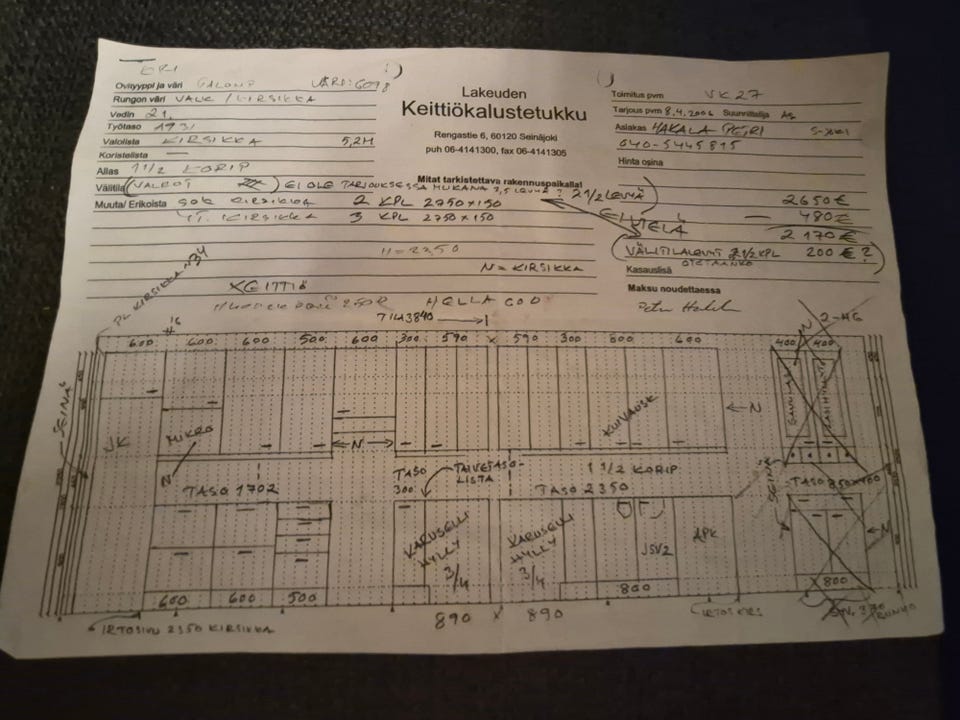 Ovityyppi ja väri GALOUP VÄRI: 6098
Rungon väri VALK / KIRSIKKA
Vedin 21.
Työtaso 1931
Valolista KIRSIKKA 5,2M
Koristelista —
Allas 1 1/2 KORIP
Välitila (VALKOT) EI OLE TARJOUKSESSA MUKANA 3,5 LEVYÄ ? 2 1/2 LEVYÄ
Muuta/ Erikoista KIRSIKKA 2 KPL 2750 x 150
KIRSIKKA 3 KPL 2750 x 150
H = 2250
N = KIRSIKKA
Lakeuden
Keittiökalustetukku
Rengastie 6, 60120 Seinäjoki
puh 06-4141300, fax 06-4141305
Mitat tarkistettava rakennuspaikalla!
Toimitus pvm VK 27
Tarjous pvm 8.4.2006 Suunnittelija
Asiakas HAKALA PETRI S-JOKI
040-5445815
Hinta osina
2650 €
— 480 €
2 170 €
(VÄLITILALEVYT 2 1/2 KPL 200 € ?)
OTETAANKO
Kasauslisä
Maksu noudettaessa
KEITTIÖ
HELLA 600
TILA 3840
2-HG
600 600 600 500 300 590 x 590 300 500 600 400 400
SEINÄ
JK
MIKRO
N
N
KUIVAUSK
N
TASO 1702
TASO 300
TAIVETASO-
LISTA
1 1/2 KORIP
TASO 2350
SEINÄ
TASO
N
KARUSELLI
HYLLY
3/4
KARUSELLI
HYLLY
3/4
JSV2
APK
600 600 500 800 800
890 x 890
IRTOSIVU 2350 KIRSIKKA